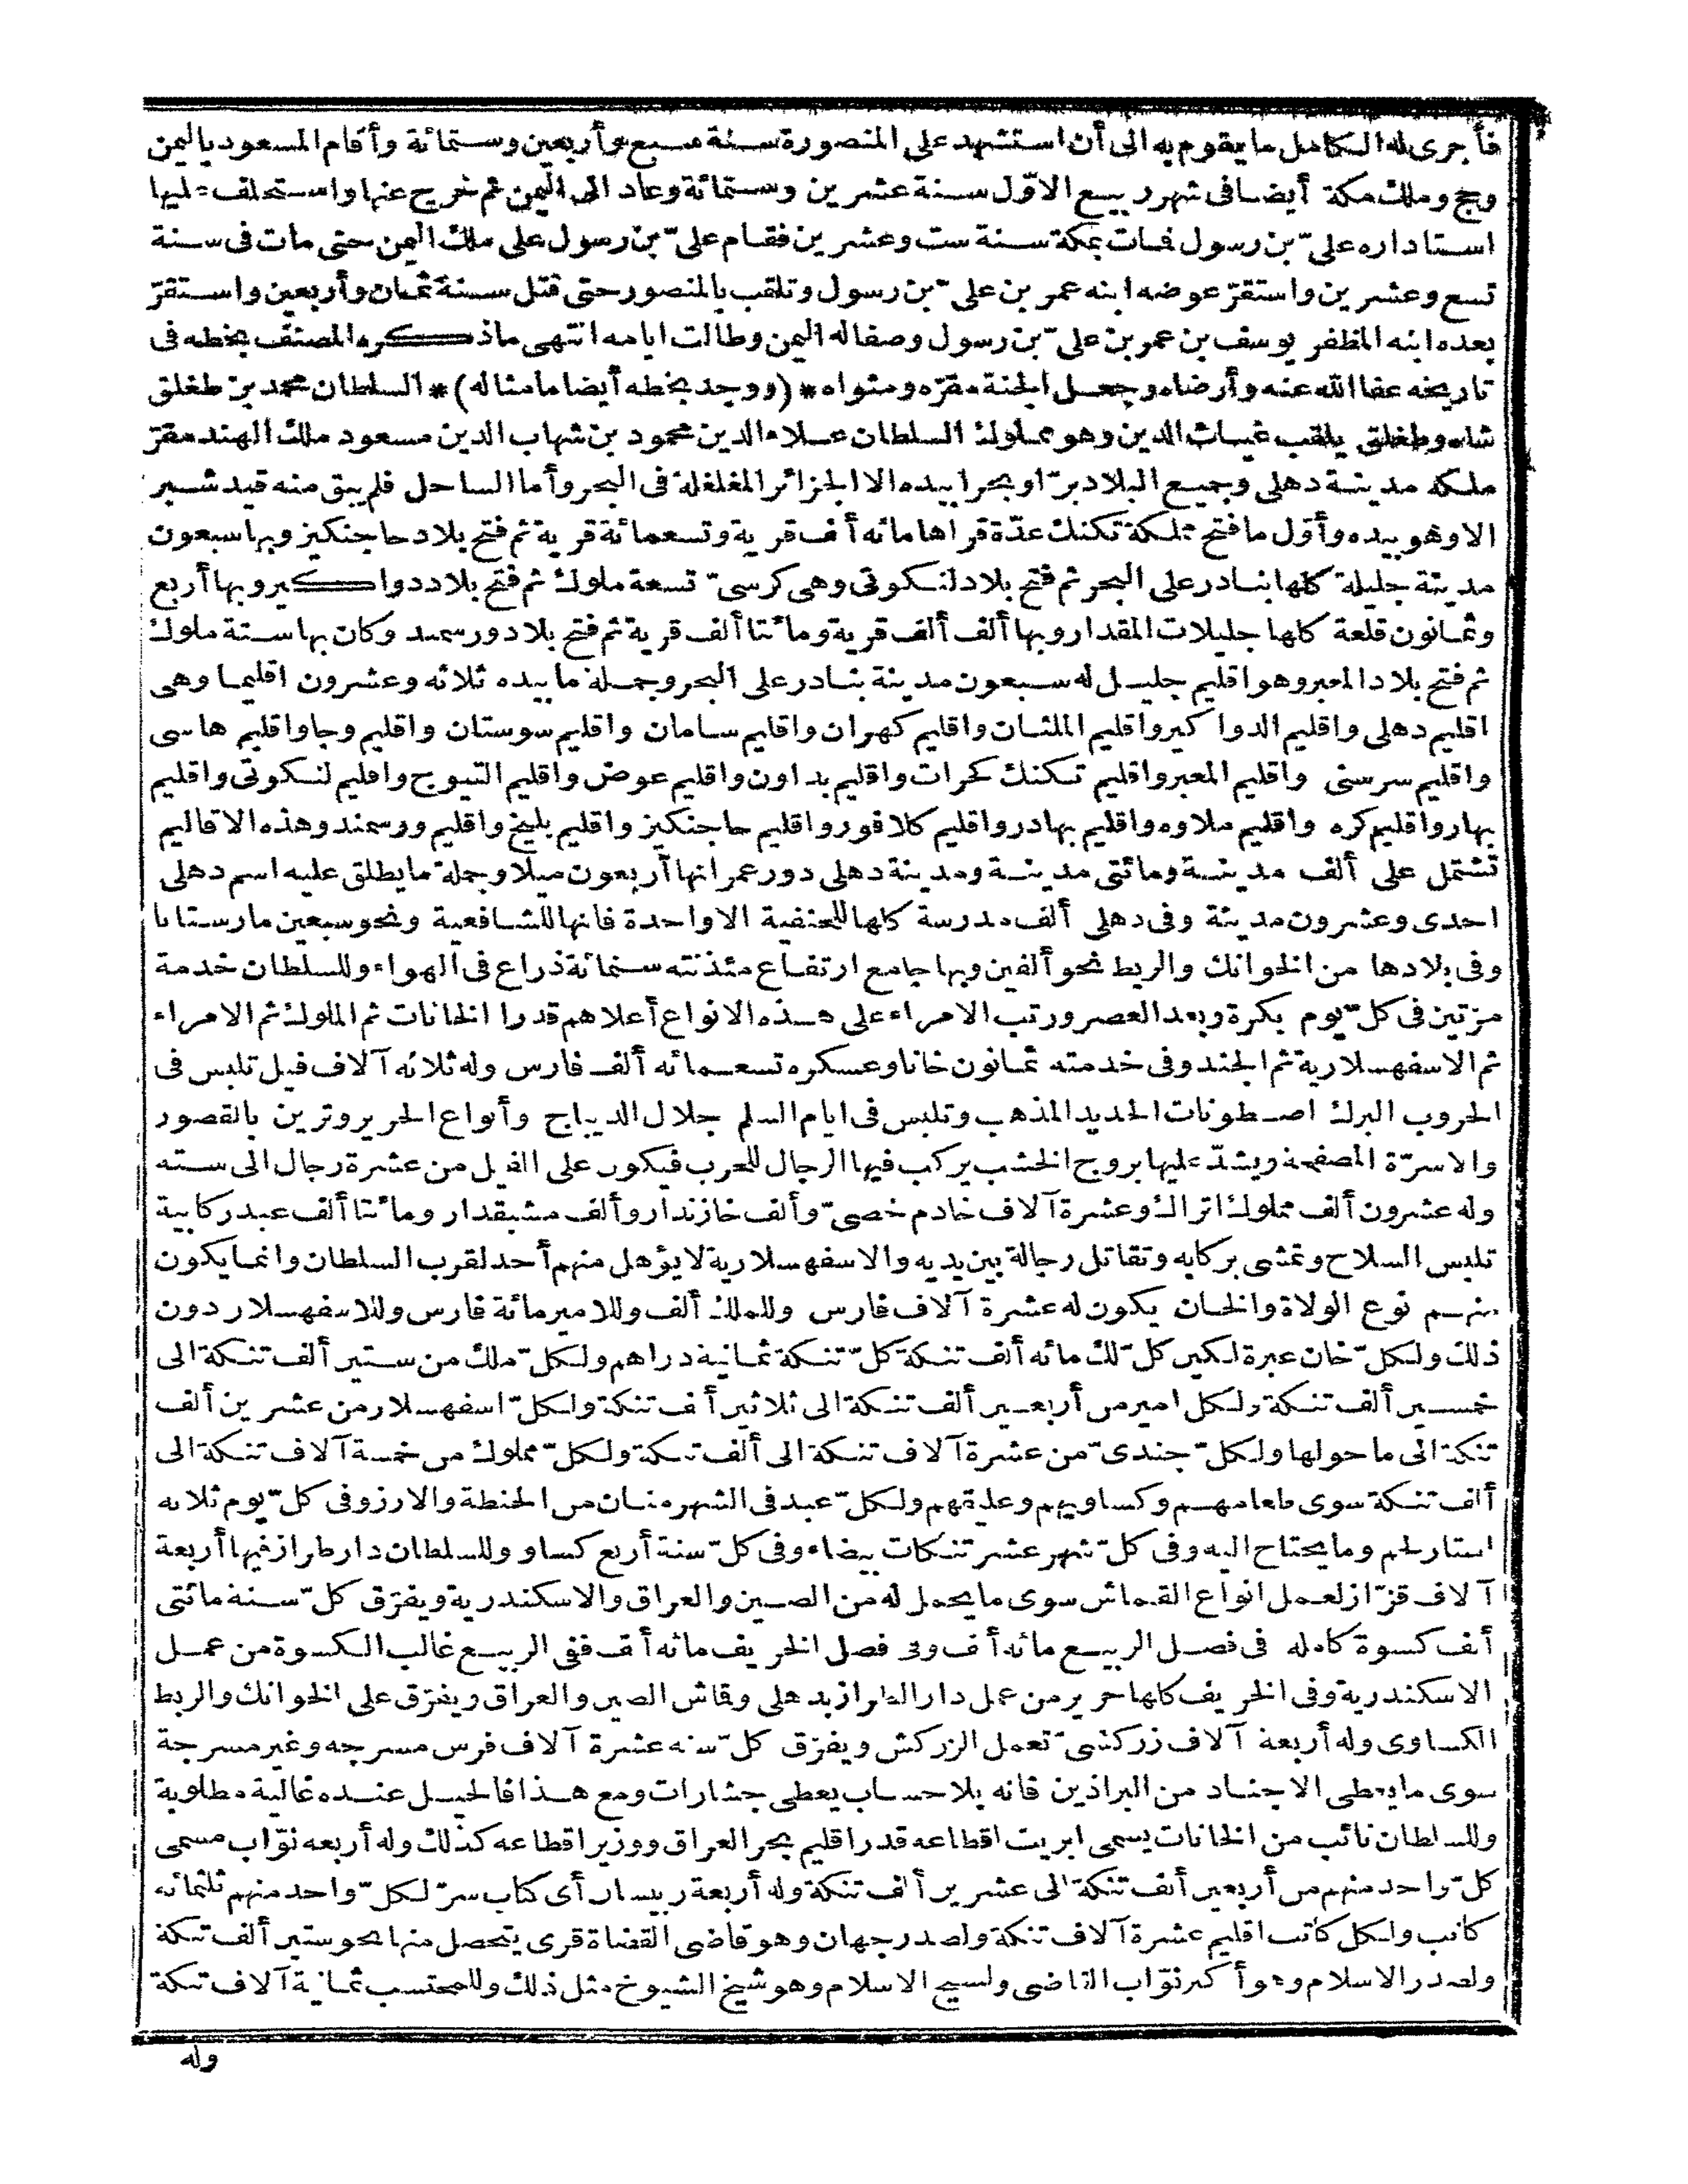 فأجرى له الكامل ما يقوم به الى أن استشهد على المنصورة سنة سبع وأربعين وستمائة وأقام المسعود باليمن
وحج وملك مكة أيضا فى شهر ربيع الاوّل سنة عشرين وستمائة وعاد الى اليمن ثم خرج عنها واستخلف عليها
استاداره علىّ بن رسول فمات بمكة سنة ست وعشرين فقام علىّ بن رسول على ملك اليمن حتى مات فى سنة
تسع وعشرين واستقرّ عوضه ابنه عمر بن علىّ بن رسول وتلقب بالمنصور حتى قتل سنة ثمان وأربعين واستقرّ
بعده ابنه المظفر يوسف بن عمر بن علىّ بن رسول وصفا له اليمن وطالت ايامه انتهى ما ذكره المصنف بخطه فى
تاريخه عفا الله عنه وأرضاه وجعل الجنة مقرّه ومثواه * (ووجد بخطه أيضا ما مثاله) * السلطان محمد بن طغلق
شاه وطغلق يلقب غياث الدين وهو مملوك السلطان علاء الدين محمود بن شهاب الدين مسعود ملك الهند مقرّ
ملكه مدينة دهلى وجميع البلاد برّا وبحرا بيده الا الجزائر المغلغلة فى البحر وأما الساحل فلم يبق منه قيد شبر
الا وهو بيده وأوّل ما فتح مملكة تكنك عدّة قراها مائه ألف قرية وتسعمائة قرية ثم فتح بلاد حاجنكيز وبها سبعون
مدينة جليلة كلها بنادر على البحر ثم فتح بلاد لنكوتى وهى كرسىّ تسعة ملوك ثم فتح بلاد دواكير وبها أربع
وثمانون قلعة كلها جليلات المقدار وبها ألف ألف قرية ومائتا ألف قرية ثم فتح بلاد دورسمند وكان بها ستة ملوك
ثم فتح بلاد المعبر وهو اقليم جليل له سبعون مدينة بنادر على البحر وجملة ما بيده ثلاثه وعشرون اقليما وهى
اقليم دهلى واقليم الدواكير واقليم الملثان واقليم كهران واقليم سامان واقليم سوستان واقليم وجا واقليم هاسى
واقليم سرسنى واقليم المعبر واقليم تكنك كحرات واقليم بداون واقليم عوض واقليم التيوج واقليم لنكوتى واقليم
بهار واقليم كره واقليم ملاوه واقليم بهادر واقليم كلافور واقليم حاجنكيز واقليم بليخ واقليم وورسمند وهذه الاقاليم
تشتمل على ألف مدينة ومائتى مدينة ومدينة دهلى دور عمرانها أربعون ميلا وجملة ما يطلق عليه اسم دهلى
احدى وعشرون مدينة وفى دهلى ألف مدرسة كلها للحنفية الا واحدة فانها للشافعية ونحو سبعين مارستانا
وفى بلادها من الخوانك والربط نحو ألفين وبها جامع ارتفاع مئذنته ستمائة ذراع فى الهواء وللسلطان خدمة
مرّتين فى كلّ يوم بكرة وبعد العصر ورتب الامراء على هذه الانواع أعلاهم قدرا الخانات ثم الملوك ثم الامراء
ثم الاسفهسلارية ثم الجند وفى خدمته ثمانون خانا وعسكره تسعمائه ألف فارس وله ثلاثه آلاف فيل تلبس فى
الحروب البرك اصطونات الحديد المذهب وتلبس فى ايام السلم جلال الديباج وأنواع الحرير وتزين بالقصور
والاسرّة المصفحة ويشدّ عليها بروج الخشب يركب فيها الرجال للحرب فيكون على الفيل من عشرة رجال الى سته
وله عشرون ألف مملوك اتراك وعشرة آلاف خادم خصىّ وألف خازندار وألف مشبقدار ومائتا ألف عبد ركابية
تلبس السلاح وتمشى بركابه وتقاتل رجالة بين يديه والاسفهسلارية لا يؤهل منهم أحد لقرب السلطان وانما يكون
منهم نوع الولاة والخان يكون له عشرة آلاف فارس وللملك ألف وللامير مائة فارس وللاسفهسلار دون
ذلك ولكلّ خان عبرة لكين كلّ لك مائه ألف تنكة كلّ تنكة ثمانية دراهم ولكلّ ملك من ستين ألف تنكة الى
خمسين ألف تنكة ولكل امير من أربعين ألف تنكة الى ثلاثين ألف تنكة ولكلّ اسفهسلار من عشرين ألف
تنكة الى ما حولها ولكلّ جندىّ من عشرة آلاف تنكة الى ألف تنكة ولكلّ مملوك من خمسة آلاف تنكة الى
ألف تنكة سوى طعامهم وكساويهم وعليقهم ولكلّ عبد فى الشهر منان من الحنطة والارز وفى كلّ يوم ثلاثه
استار لحم وما يحتاج اليه وفى كلّ شهر عشر تنكات بيضاء وفى كلّ سنة أربع كساو وللسلطان دار طراز فيها أربعة
آلاف قزّاز لعمل انواع القماش سوى ما يحمل له من الصين والعراق والاسكندرية ويفرّق كلّ سنة مائتى
ألف كسوة كامله فى فصل الربيع مائه ألف وفى فصل الخريف مائه ألف ففى الربيع غالب الكسوة من عمل
الاسكندرية وفى الخريف كلها حرير من عمل دار الطراز بدهلى وقماش الصين والعراق ويفرّق على الخوانك والربط
الكساوى وله أربعة آلاف زركشىّ تعمل الزركش ويفرّق كلّ سنه عشرة آلاف فرس مسرجه وغير مسرجة
سوى ما يعطى الاجناد من البراذين فانه بلا حساب يعطى جشارات ومع هذا فالخيل عنده غالية مطلوبة
وللسلطان نائب من الخانات يسمى ابريت اقطاعه قدر اقليم بحر العراق ووزير اقطاعه كذلك وله أربعه نوّاب مسمى
كلّ واحد منهم من أربعين ألف تنكة الى عشرين ألف تنكة وله أربعة ربيسار أى كتاب سرّ لكلّ واحد منهم ثلثمائه
كاتب ولكل كاتب اقليم عشرة آلاف تنكة ولصدر جهان وهو قاضى القضاة قرى يتحصل منها نحو ستين ألف تنكة
ولصدر الاسلام وهو أكبر نوّاب القاضى ولشيخ الاسلام وهو شيخ الشيوخ مثل ذلك وللمحتسب ثمانية آلاف تنكة
وله